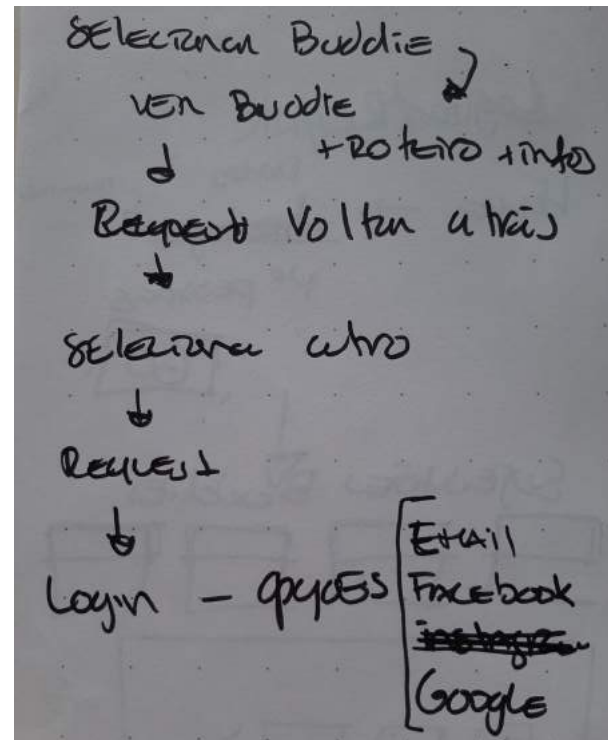 Selecionar Buddie
ver Buddie
+ Roteiro + infos
Request Voltar atrás
Seleciona outro
Request
Login - opções
Email
Facebook
Google